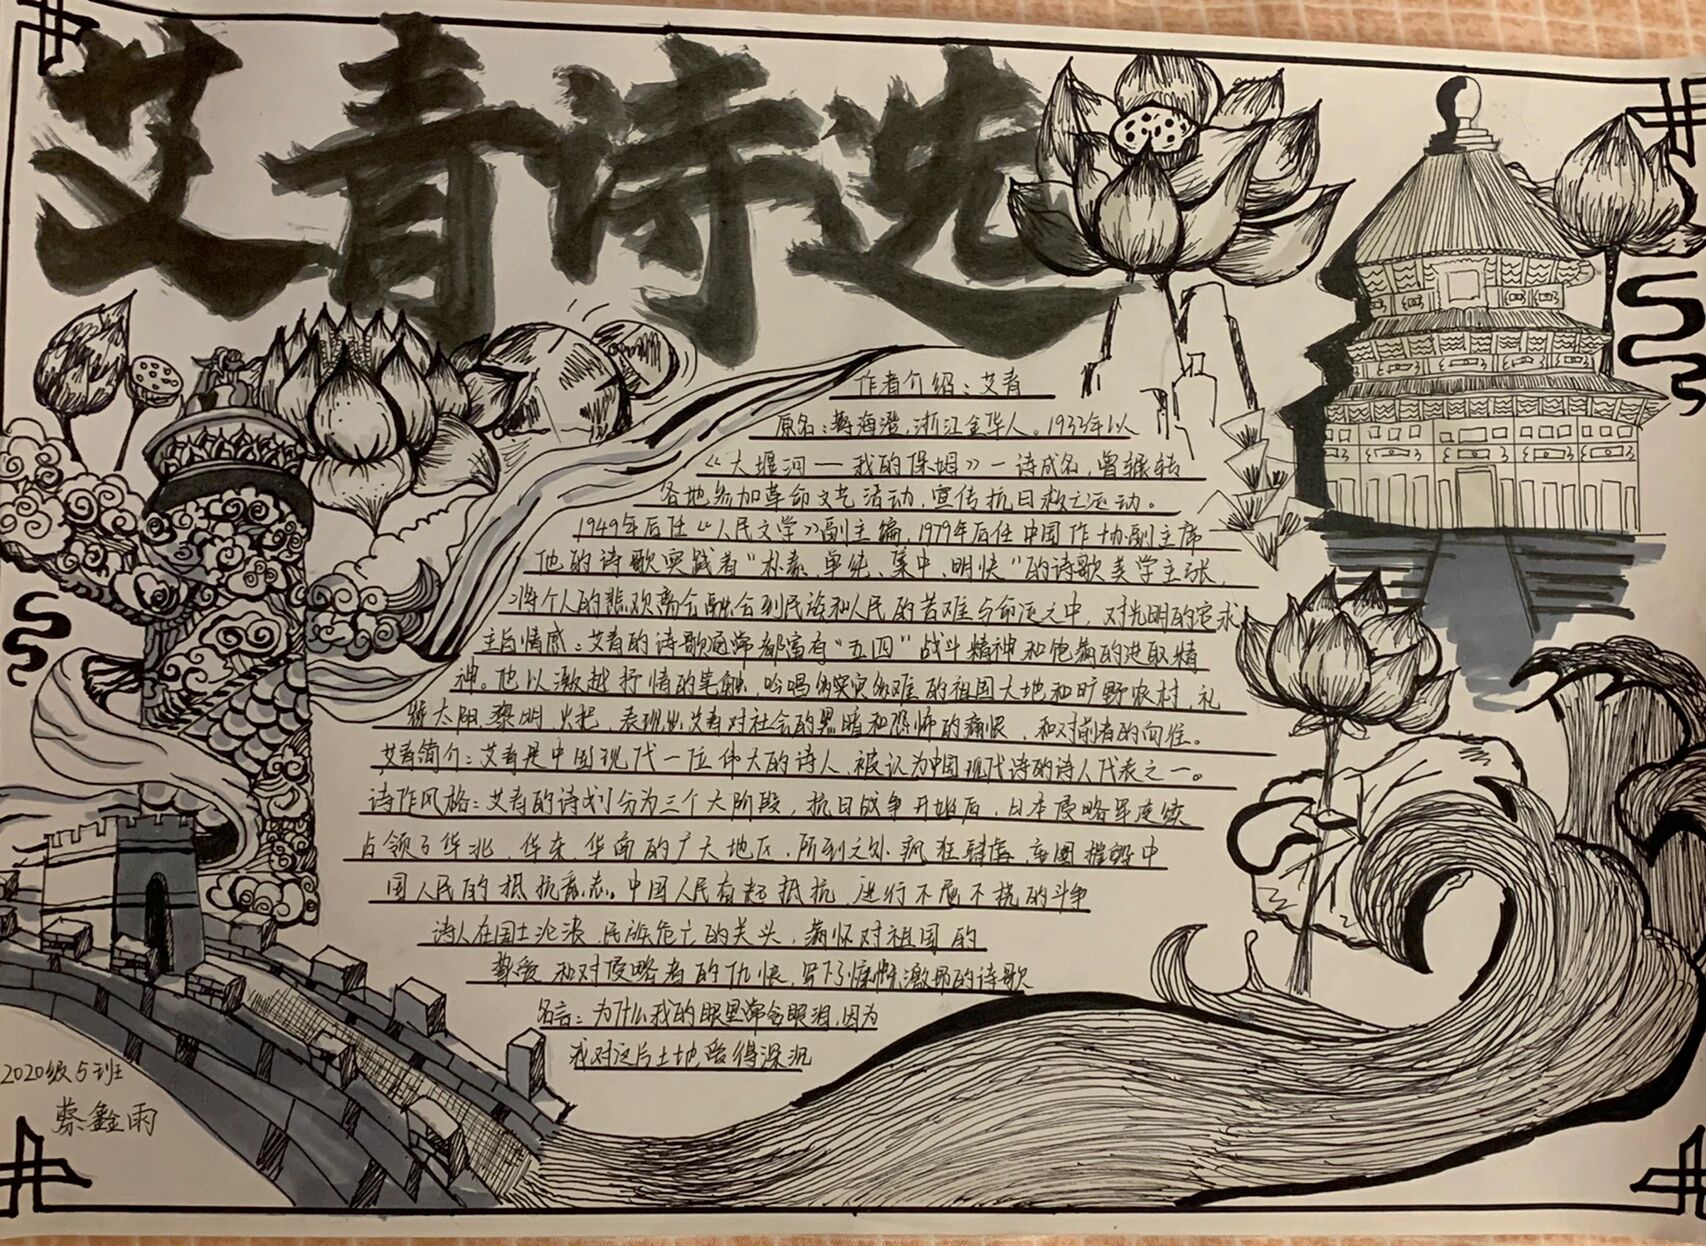 艾青诗选
作者介绍：艾青
原名：蒋海澄，浙江金华人。1933年以
《大堰河一我的保姆》一诗成名，曾辗转
各地参加革命文艺活动，宣传抗日救亡运动。
1949年后任《人民文学》副主编，1979年后任中国作协副主席
他的诗歌实践着“朴素、单纯、集中、明快”的诗歌美学主张，
将个人的悲欢离合融合到民族和人民的苦难与命运之中，对光明的
主旨情感：艾青的诗歌通常都富有“五四”战斗精神和饱满的进取精
神。他以激越抒情的笔触，吟唱 灾难的祖国大地和旷野农村，礼
太阳、黎明、火把，表现出艾青对社会的黑暗和恐怖的痛恨，和对前者的向往。
艾青简介：艾青是中国现代一位伟大的诗人，被认为中国现代诗的诗人代表之一。
诗作风格：艾青的诗划分为三个大阶段，抗日战争开始后，日本侵略军连续
占领了华北、华东、华南的广大地区，所到之处 疯狂肆虐，企图摧毁中
国人民的抵抗意志。中国人民奋起抵抗，进行不屈不挠的斗争
诗人在国土沦丧、民族危亡的关头，满怀对祖国的
挚爱和对侵略者的仇恨，写下了慷慨激昂的诗歌
名言：为什么我的眼里常含眼泪，因为
我对这片土地爱得深沉
2020级5班
蔡鑫雨